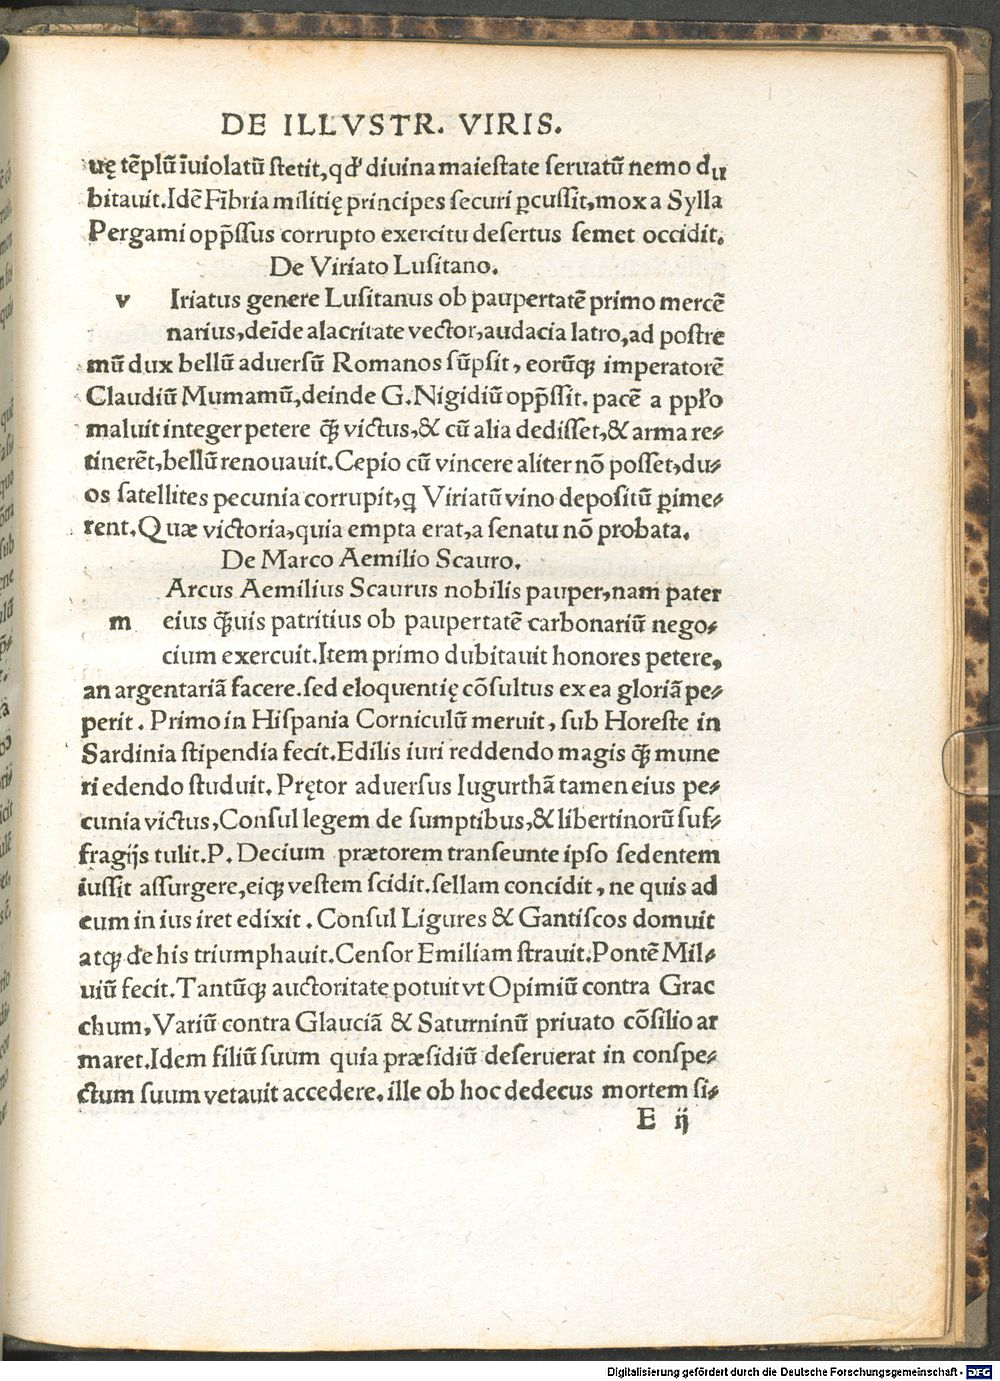 DE ILLVSTR. VIRIS.
uę tēplū īuiolatū stetit, qđ diuina maiestate seruatū nemo du
bitauit. Idē Fībria militię principes securi ꝑcussit, mox a Sylla
Pergami opp̄ssus corrupto exercitu desertus semet occidit.
De Viriato Lusitano.
v Iriatus genere Lusitanus ob paupertatē primo mercē
narius, deīde alacritate vector, audacia latro, ad postre
mū dux bellū aduersū Romanos sūpsit, eorūqꝫ imperatorē
Claudiū Mumamū, deinde G. Nigidiū opp̄ssit. pacē a ppło
maluit integer petere q̄ꝫ victus, & cū alia dedisset, & arma re⸗
tinerēt, bellū renouauit. Cepio cū vincere aliter nō posset, du⸗
os satellites pecunia corrupit, q Viriatū vino depositū ꝑime⸗
rent. Quæ victoria, quia empta erat, a senatu nō probata.
De Marco Aemilio Scauro.
Arcus Aemilius Scaurus nobilis pauper, nam pater
m eius q̄ꝫuis patritius ob paupertatē carbonariū nego⸗
cium exercuit. Item primo dubitauit honores petere,
an argentariā facere. sed eloquentię cōsultus ex ea gloriā pe⸗
perit. Primo in Hispania Corniculū meruit, sub Horeste in
Sardinia stipendia fecit. Edilis iuri reddendo magis q̄ꝫ mune
ri edendo studuit. Prętor aduersus Iugurthā tamen eius pe⸗
cunia victus, Consul legem de sumptibus, & libertinorū suf⸗
fragijs tulit. P. Decium prætorem transeunte ipso sedentem
iussit assurgere, eiqꝫ vestem scidit. sellam concidit, ne quis ad
eum in ius iret edixit. Consul Ligures & Gantiscos domuit
atqꝫ de his triumphauit. Censor Emiliam strauit. Pontē Mil⸗
uiū fecit. Tantūqꝫ auctoritate potuit vt Opimiū contra Grac
chum, Variū contra Glauciā & Saturninū priuato cōsilio ar
maret. Idem filiū suum quia præsidiū deseruerat in conspe⸗
ctum suum vetauit accedere. ille ob hoc dedecus mortem si⸗
E ij
Digitalisierung gefördert durch die Deutsche Forschungsgemeinschaft - DFG